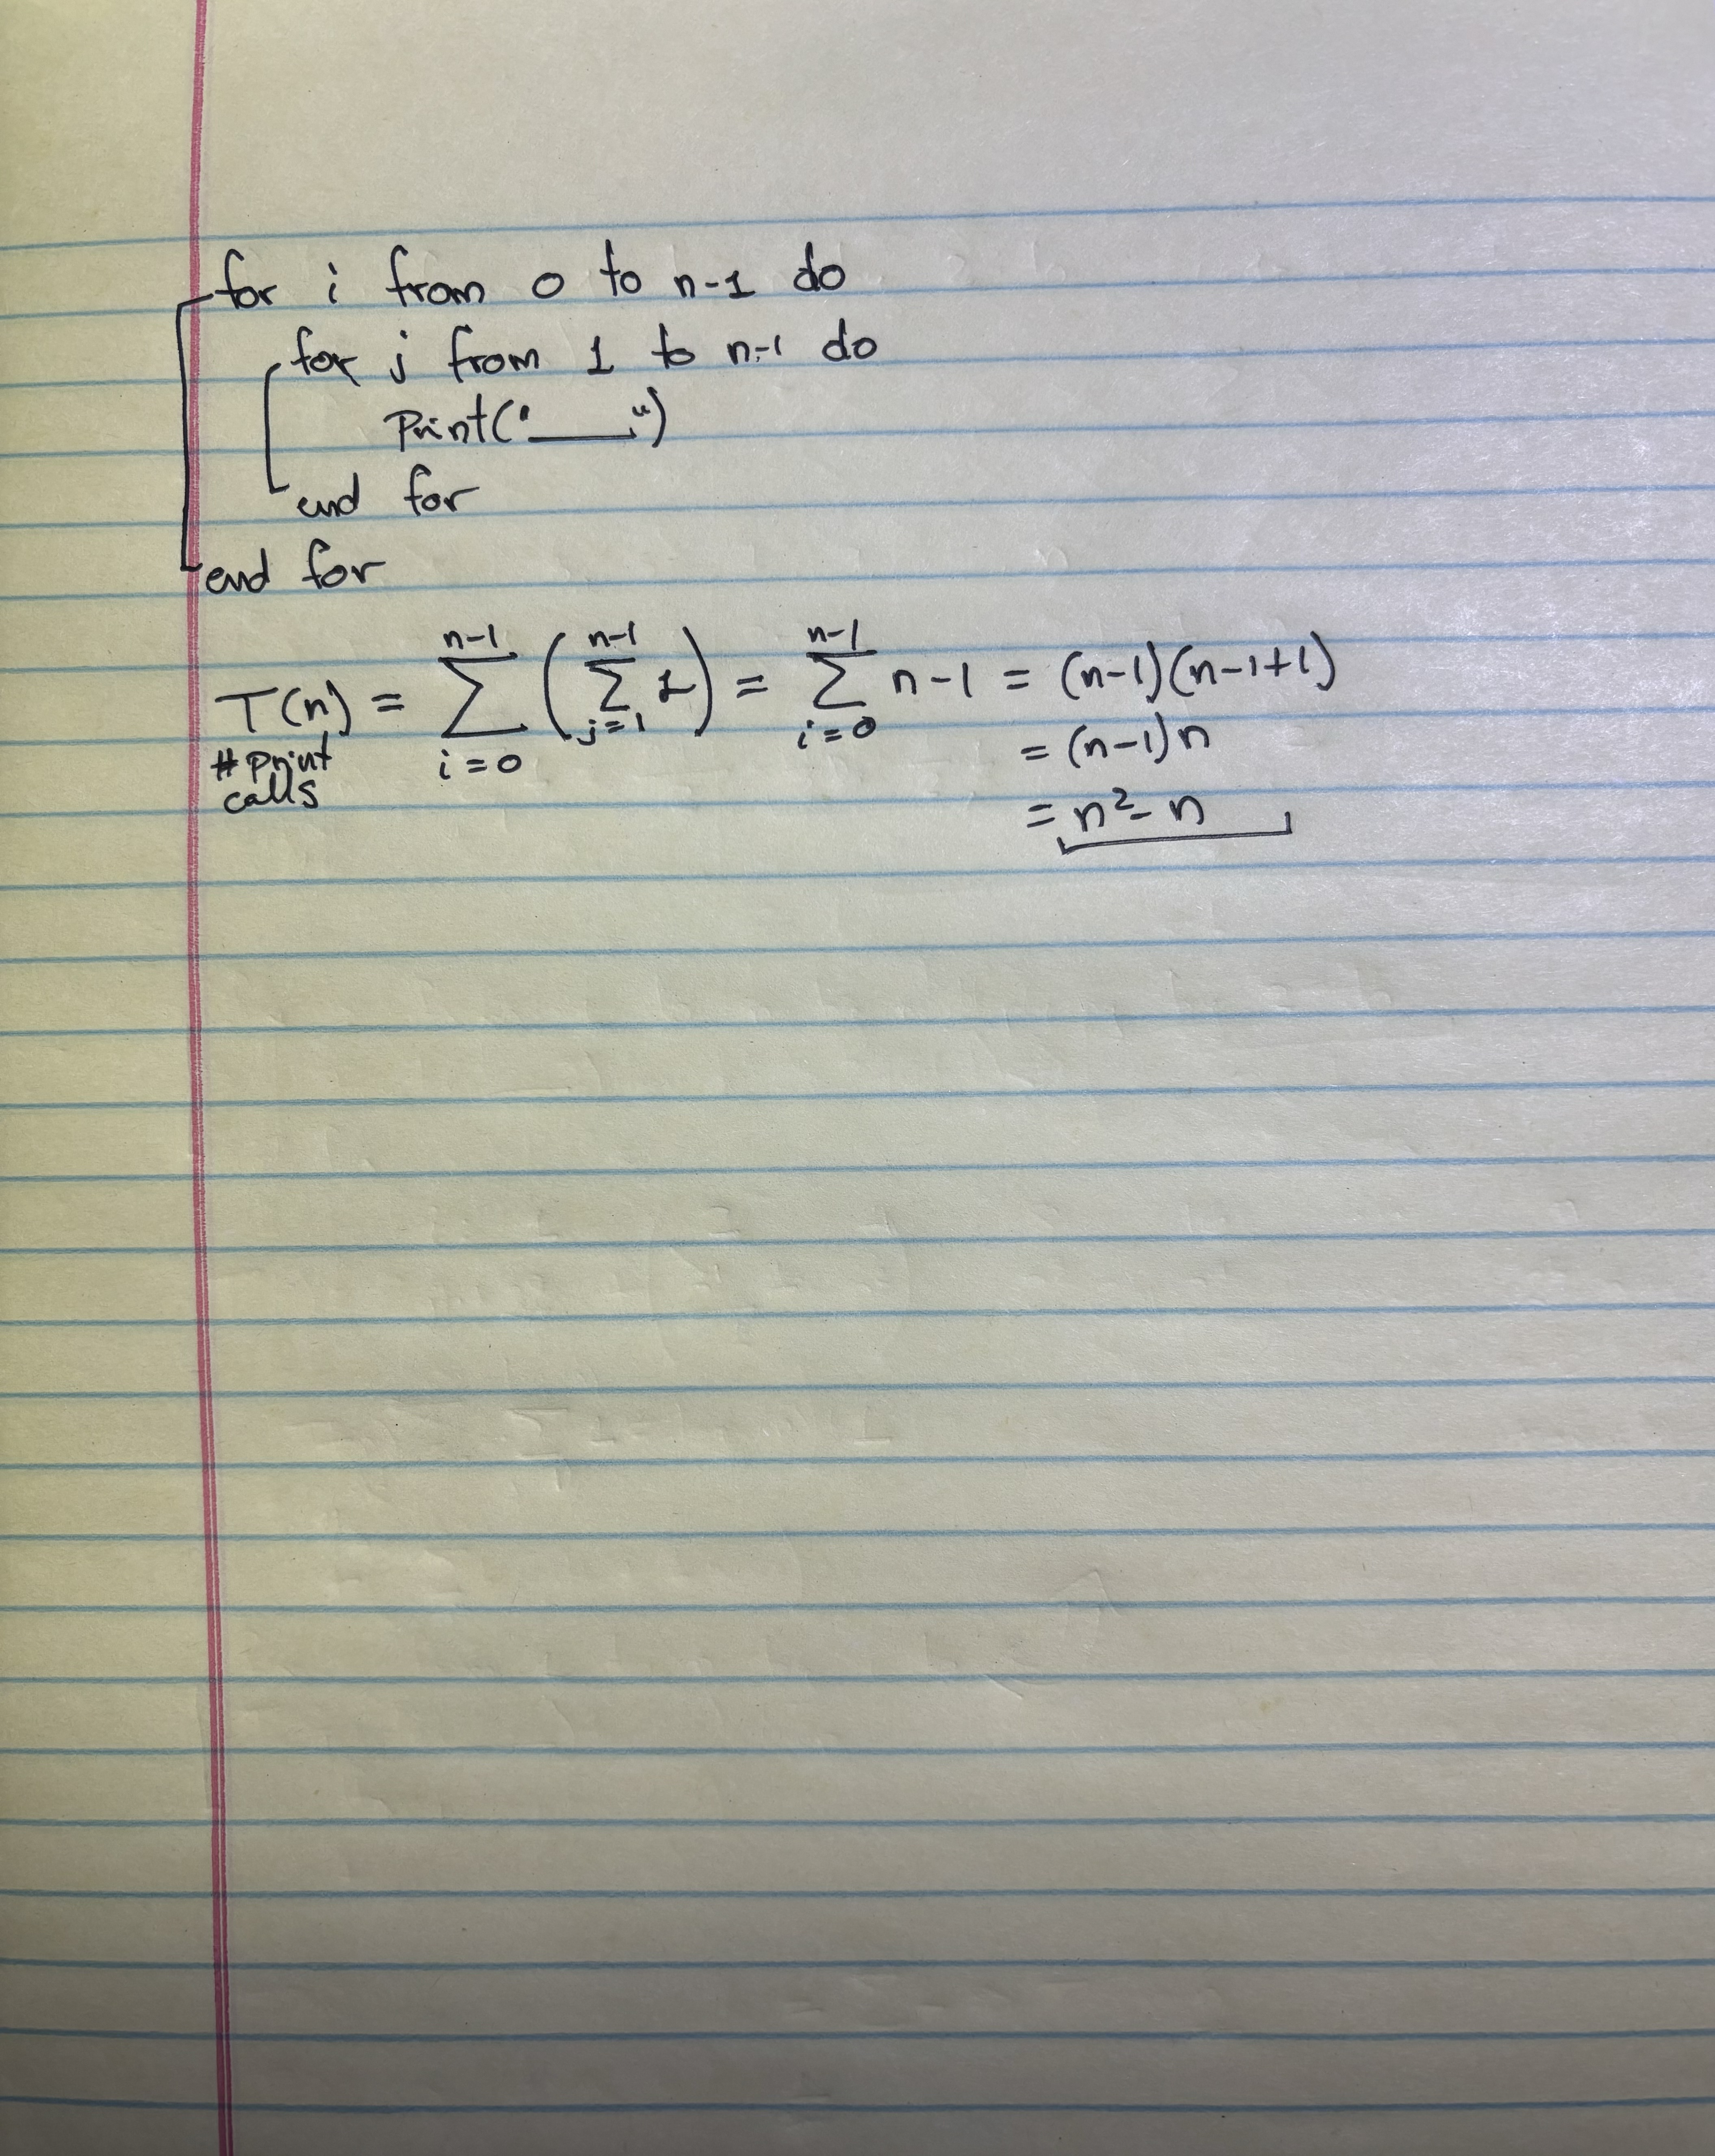 for i from 0 to n-1 do
for j from 1 to n-1 do
Print("____")
end for
end for
T(n) = \sum_{i=0}^{n-1} ( \sum_{j=1}^{n-1} 1 ) = \sum_{i=0}^{n-1} n-1 = (n-1)(n-1+1)
# print calls
= (n-1)n
= n² - n